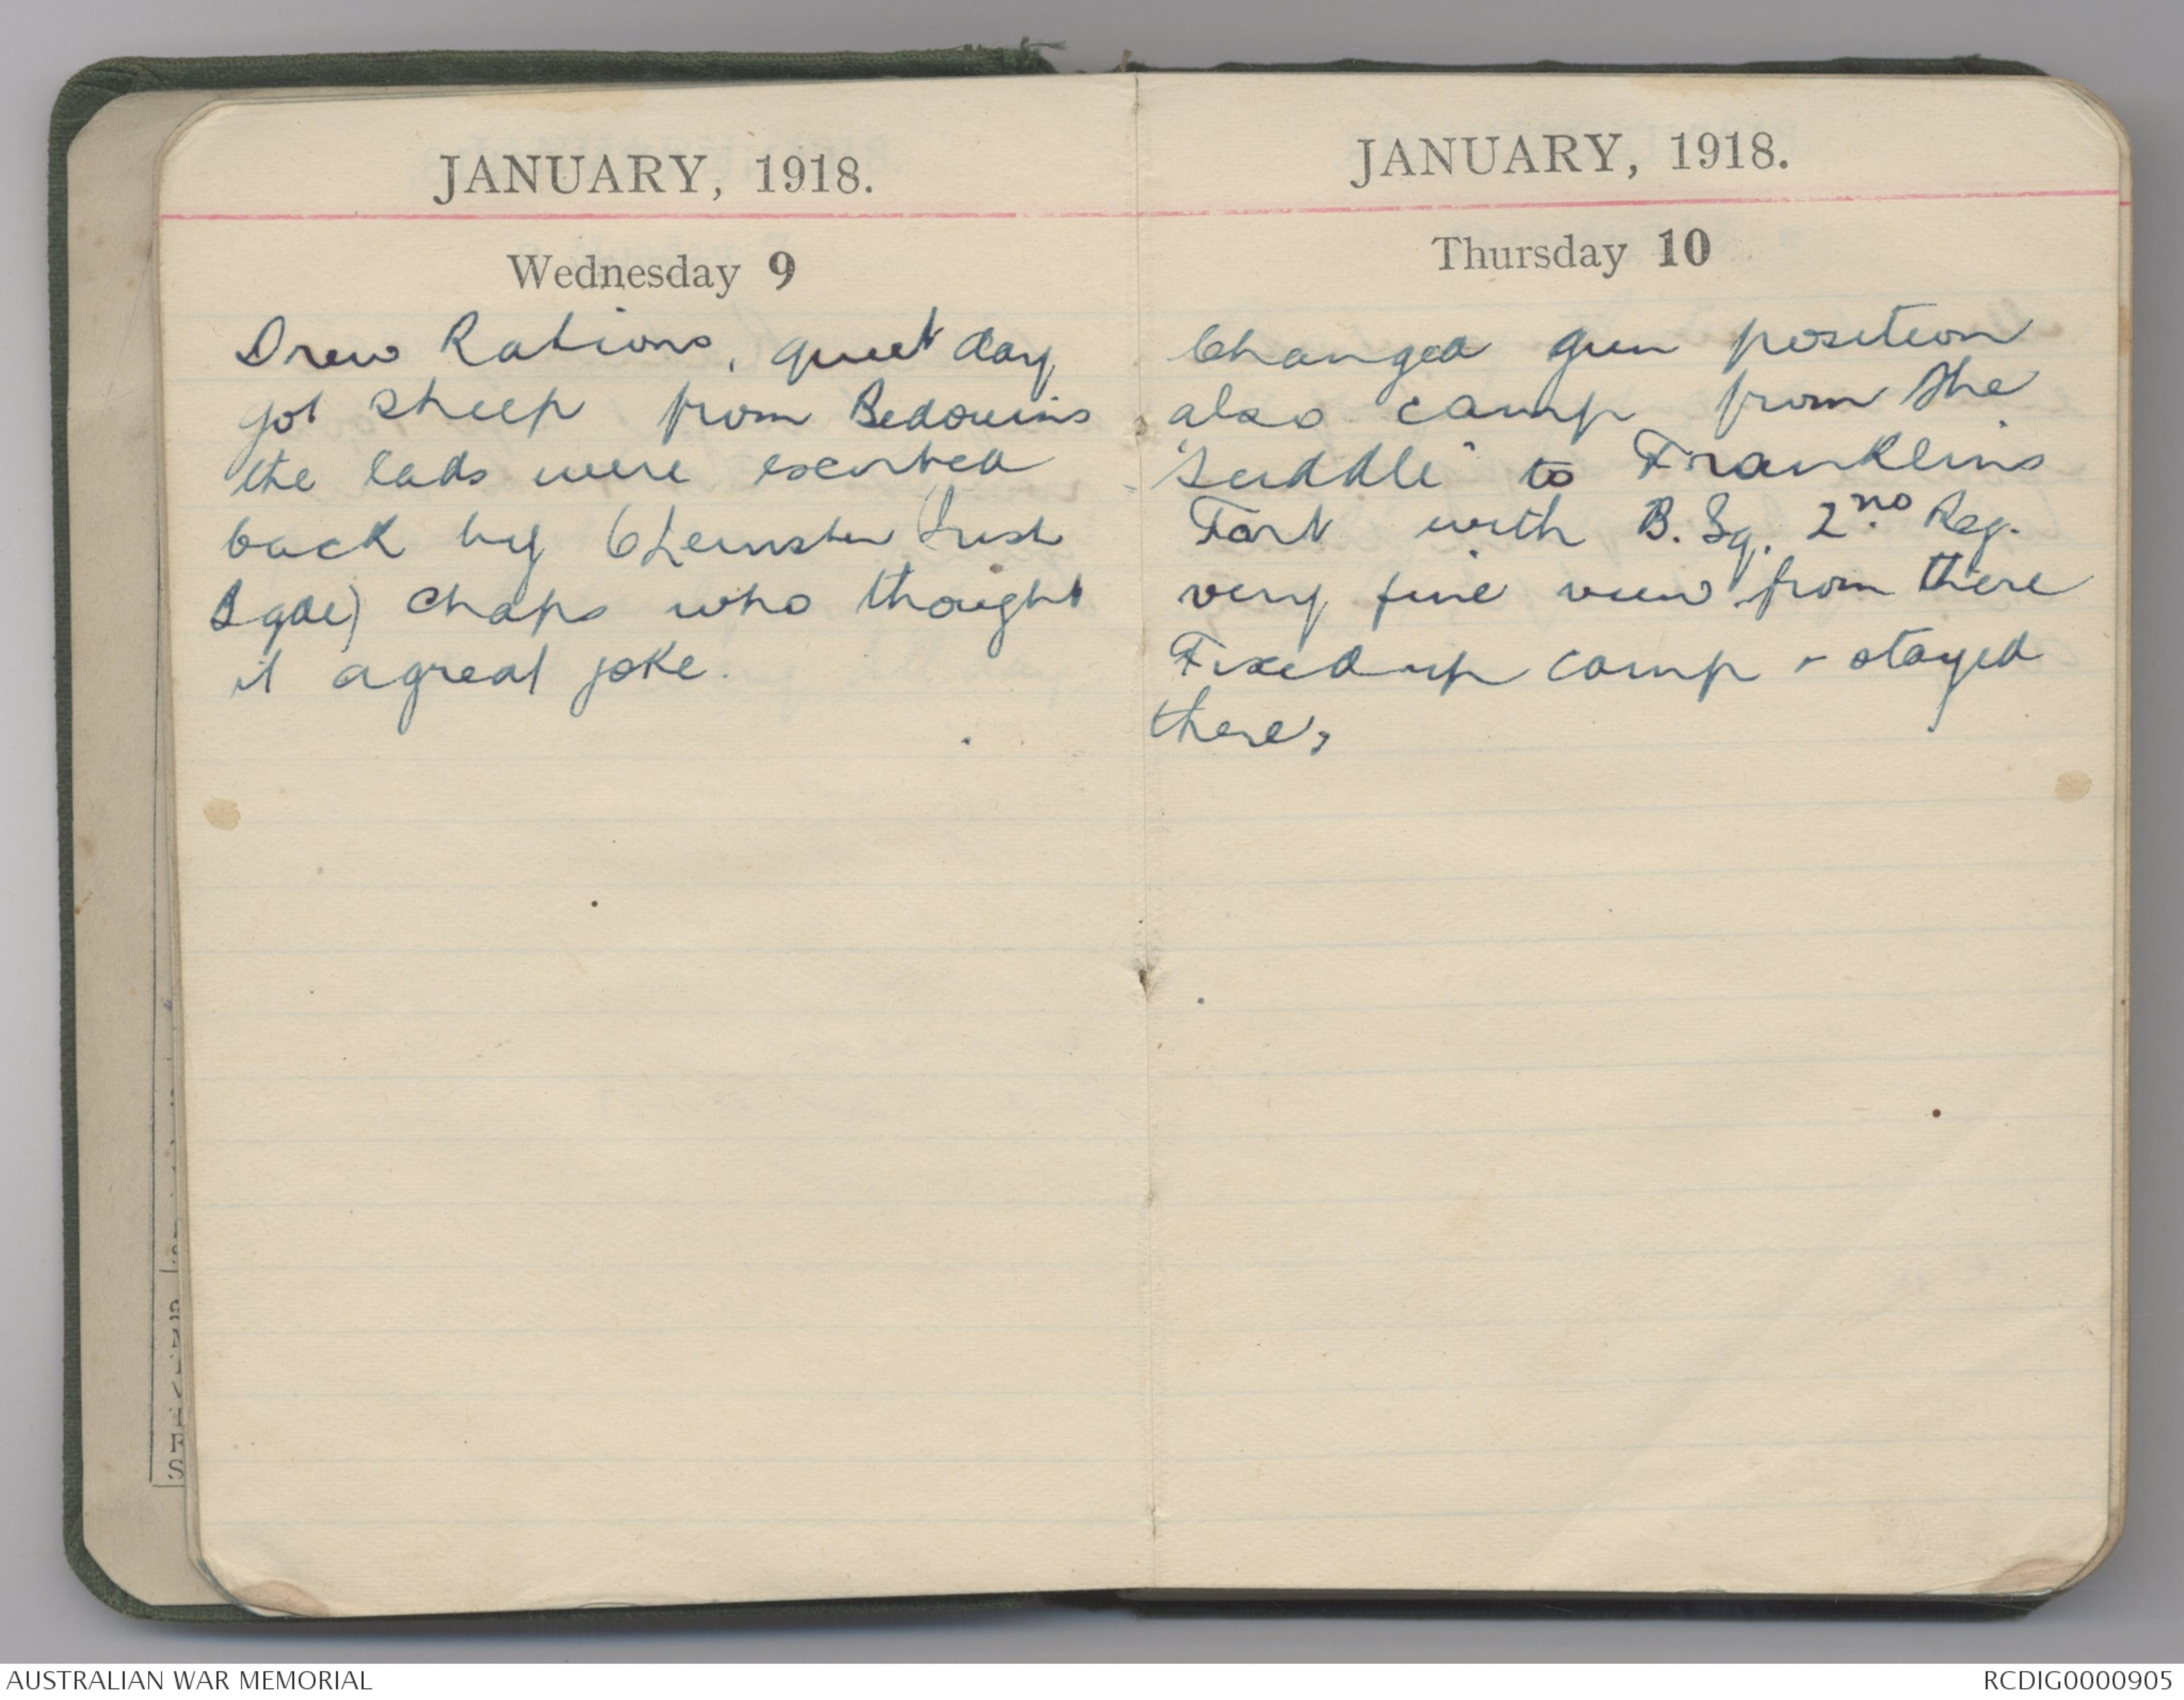 JANUARY, 1918.
Wednesday 9
Drew Rations, quiet day
got sheep from Bedouins
the lads were escorted
back by 6 Leinster (Irish
Bgde) chaps who thought
it a great joke.
JANUARY, 1918.
Thursday 10
Changed gun position
also camp from the
"Saddle" to Franklins
Fort with B. Sq. 2nd Reg.
very fine view from there
Fixed up camp & stayed
there,
AUSTRALIAN WAR MEMORIAL
RCDIG0000905